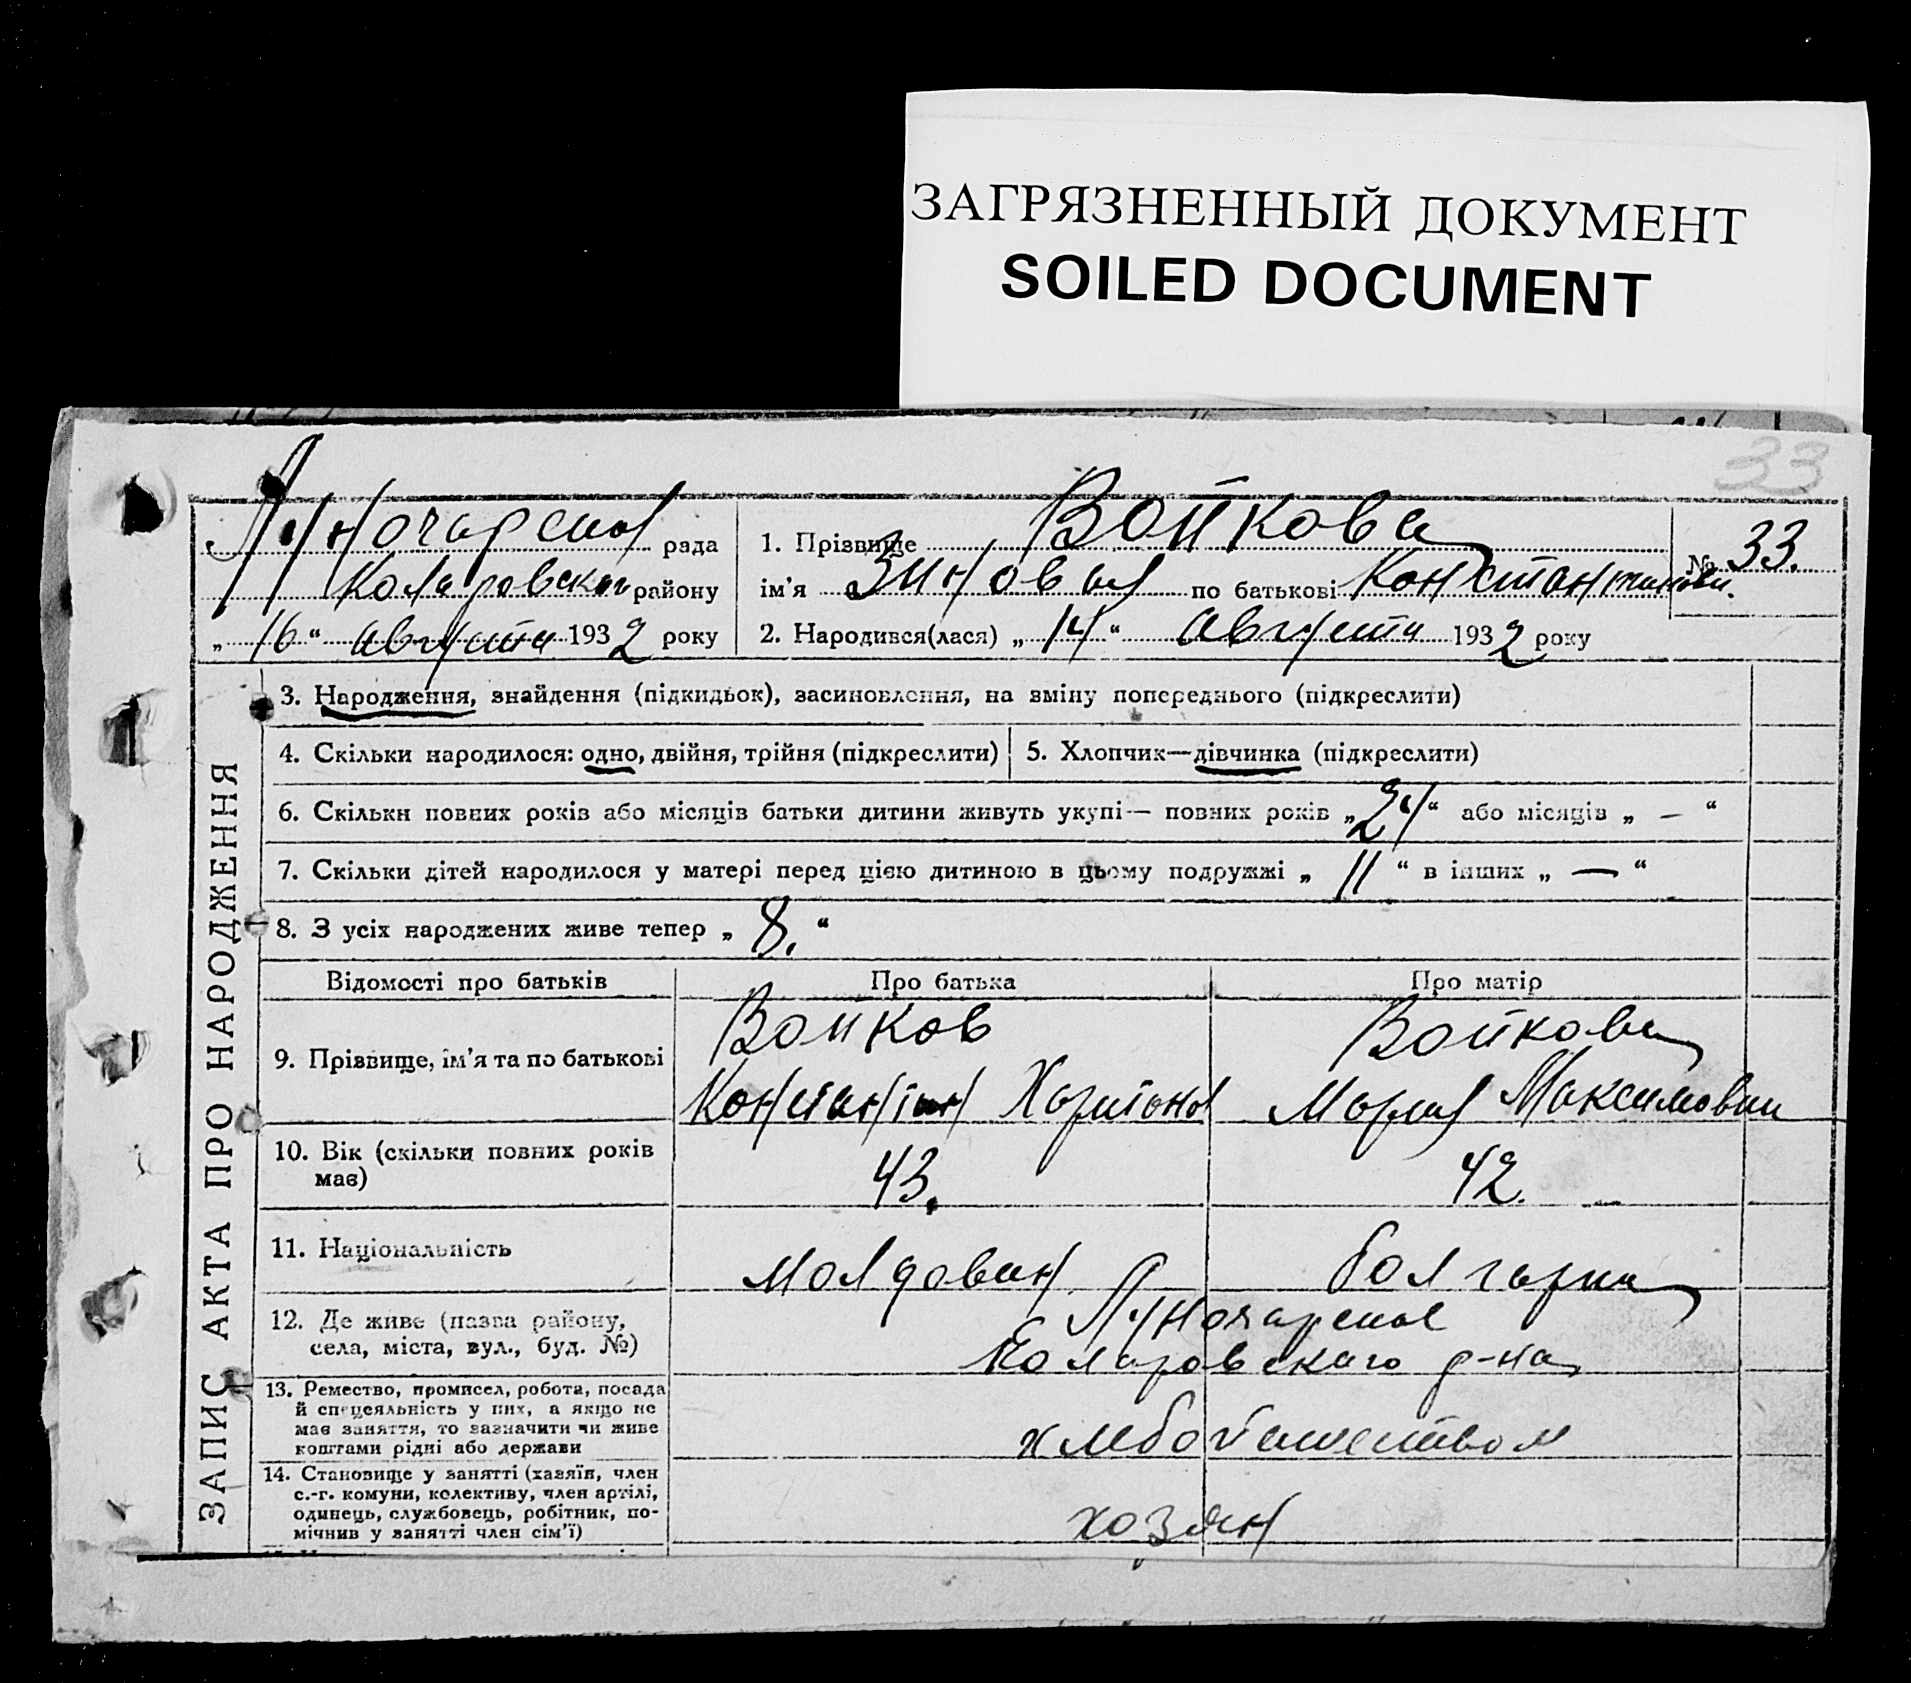 ЗАГРЯЗНЕННЫЙ ДОКУМЕНТ
SOILED DOCUMENT
33
рада
Коларовского району
„ 16 “ августа 1932 року
1. Прізвище Войкова
ім'я Зиновия по батькові Константинови.
№ 33.
2. Народився(лася) „ 14 “ августа 1932 року
ЗАПИС АКТА ПРО НАРОДЖЕННЯ
3. Народження, знайдення (підкидьок), засиновлення, на зміну попереднього (підкреслити)
4. Скільки народилося: одно, двійня, трійня (підкреслити)
5. Хлопчик—дівчинка (підкреслити)
6. Скільки повних років або місяців батьки дитини живуть укупі— повних років „ 24 “ або місяців „ — “
7. Скільки дітей народилося у матері перед цією дитиною в цьому подружжі „ 11 “ в інших „ — “
8. З усіх народжених живе тепер „ 8. “
Відомості про батьків
Про батька
Про матір
9. Прізвище, ім'я та по батькові
Войков
Константин
Войкова
Мария Максимовни
10. Вік (скільки повних років
має)
43.
42.
11. Національність
молдован
болгарка
12. Де живе (назва району,
села, міста, вул., буд. №)
Коларовскаго р-на
13. Ремество, промисел, робота, посада
й спецеяльність у них, а якщо не
має заняття, то зазначити чи живе
коштами рідні або держави
хлебопашеством
14. Становище у занятті (хазяїн, член
с.-г. комуни, колективу, член артілі,
одинець, службовець, робітник, по-
мічнив у занятті член сім'ї)
хозян